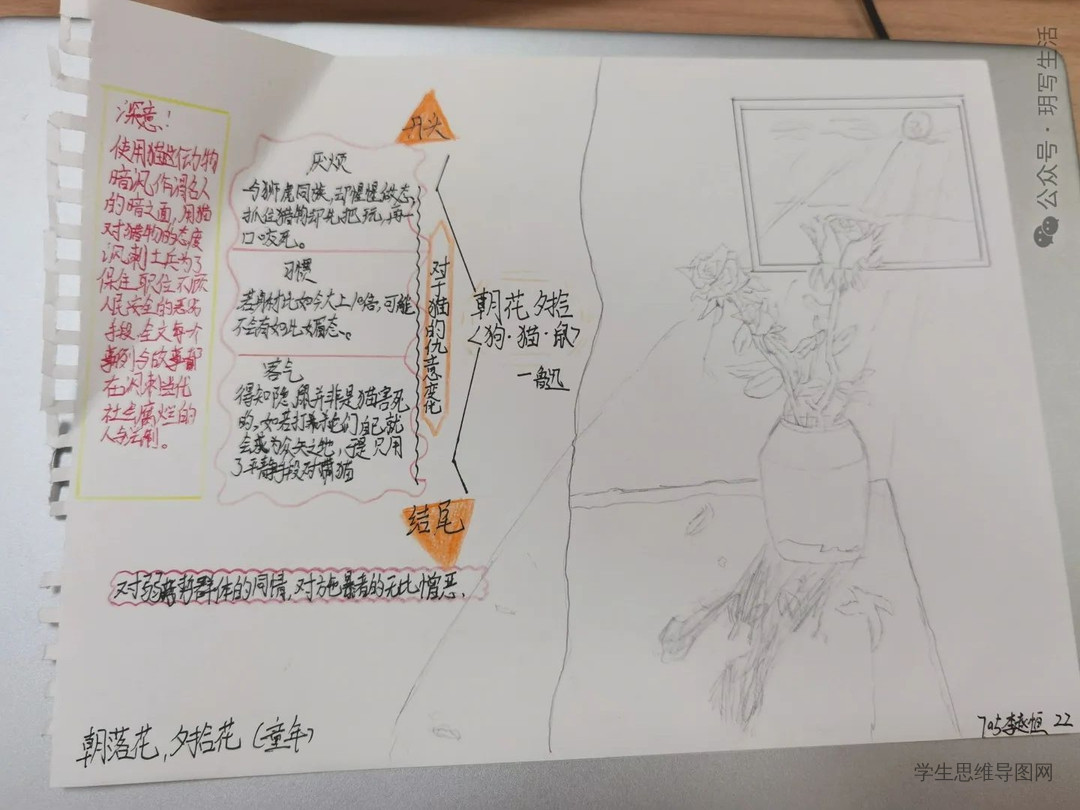 深意!
使用猫这任动物
暗讽,作谓名人
的暗之面,用猫
对猎物的态度
讽刺士兵为了
保住职位不顾
人民安全的
手段,全文每一个
事例与故事都
在讽刺当代
社会腐烂的
人与法制。
厌烦
与狮虎同族,却惺惺做态,
抓住猎物却先把玩,再一
口咬死。
习惯
若身材比如今大上10倍,可能
不会有如此媚态。
客气
得知隐鼠并非是猫害死
的,如若打杀它们自己就
会成为众矢之地,于是只用
了平静手段对满猫
开头
对于猫的仇意变化
朝花夕拾
<狗·猫·鼠>
一鲁迅
结尾
对弱群体的同情,对施暴者的无比憎恶.
朝落花,夕拾花(童年)
705李永恒 22
公众号·玥写生活
学生思维导图网